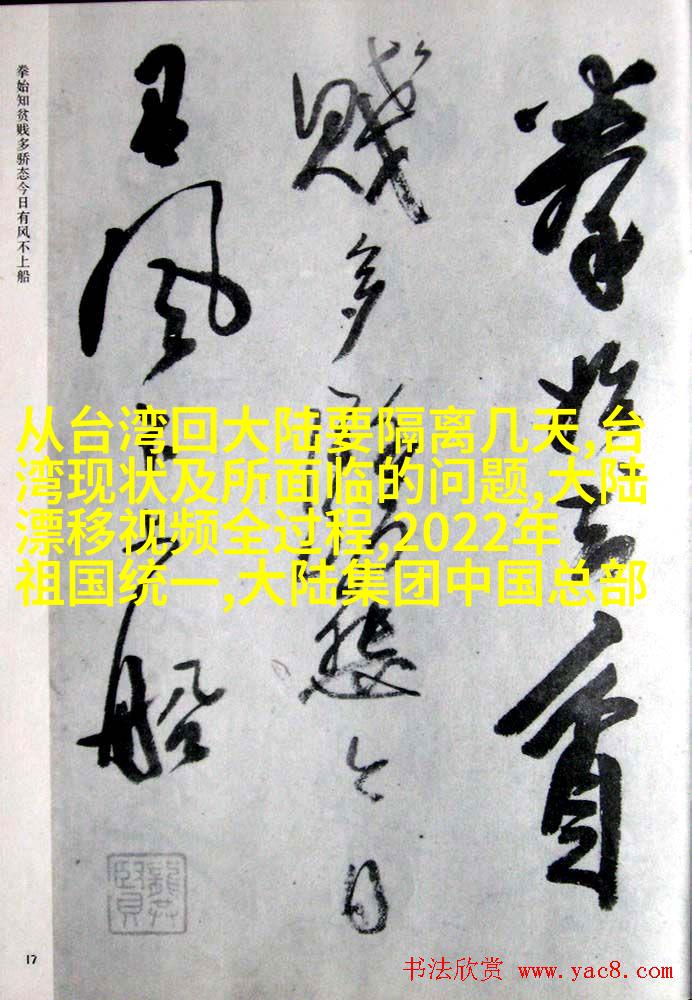 拳始知貧
賤多驕態今日
有風不上船
拳始知贫贱多骄态今日有风不上船
从台湾回大陆要隔离几天,台
湾现状及所面临的问题,大陆
漂移视频全过程,2022年
祖国统一,大陆集团中国总部
17
书法欣赏 www.yac8.com